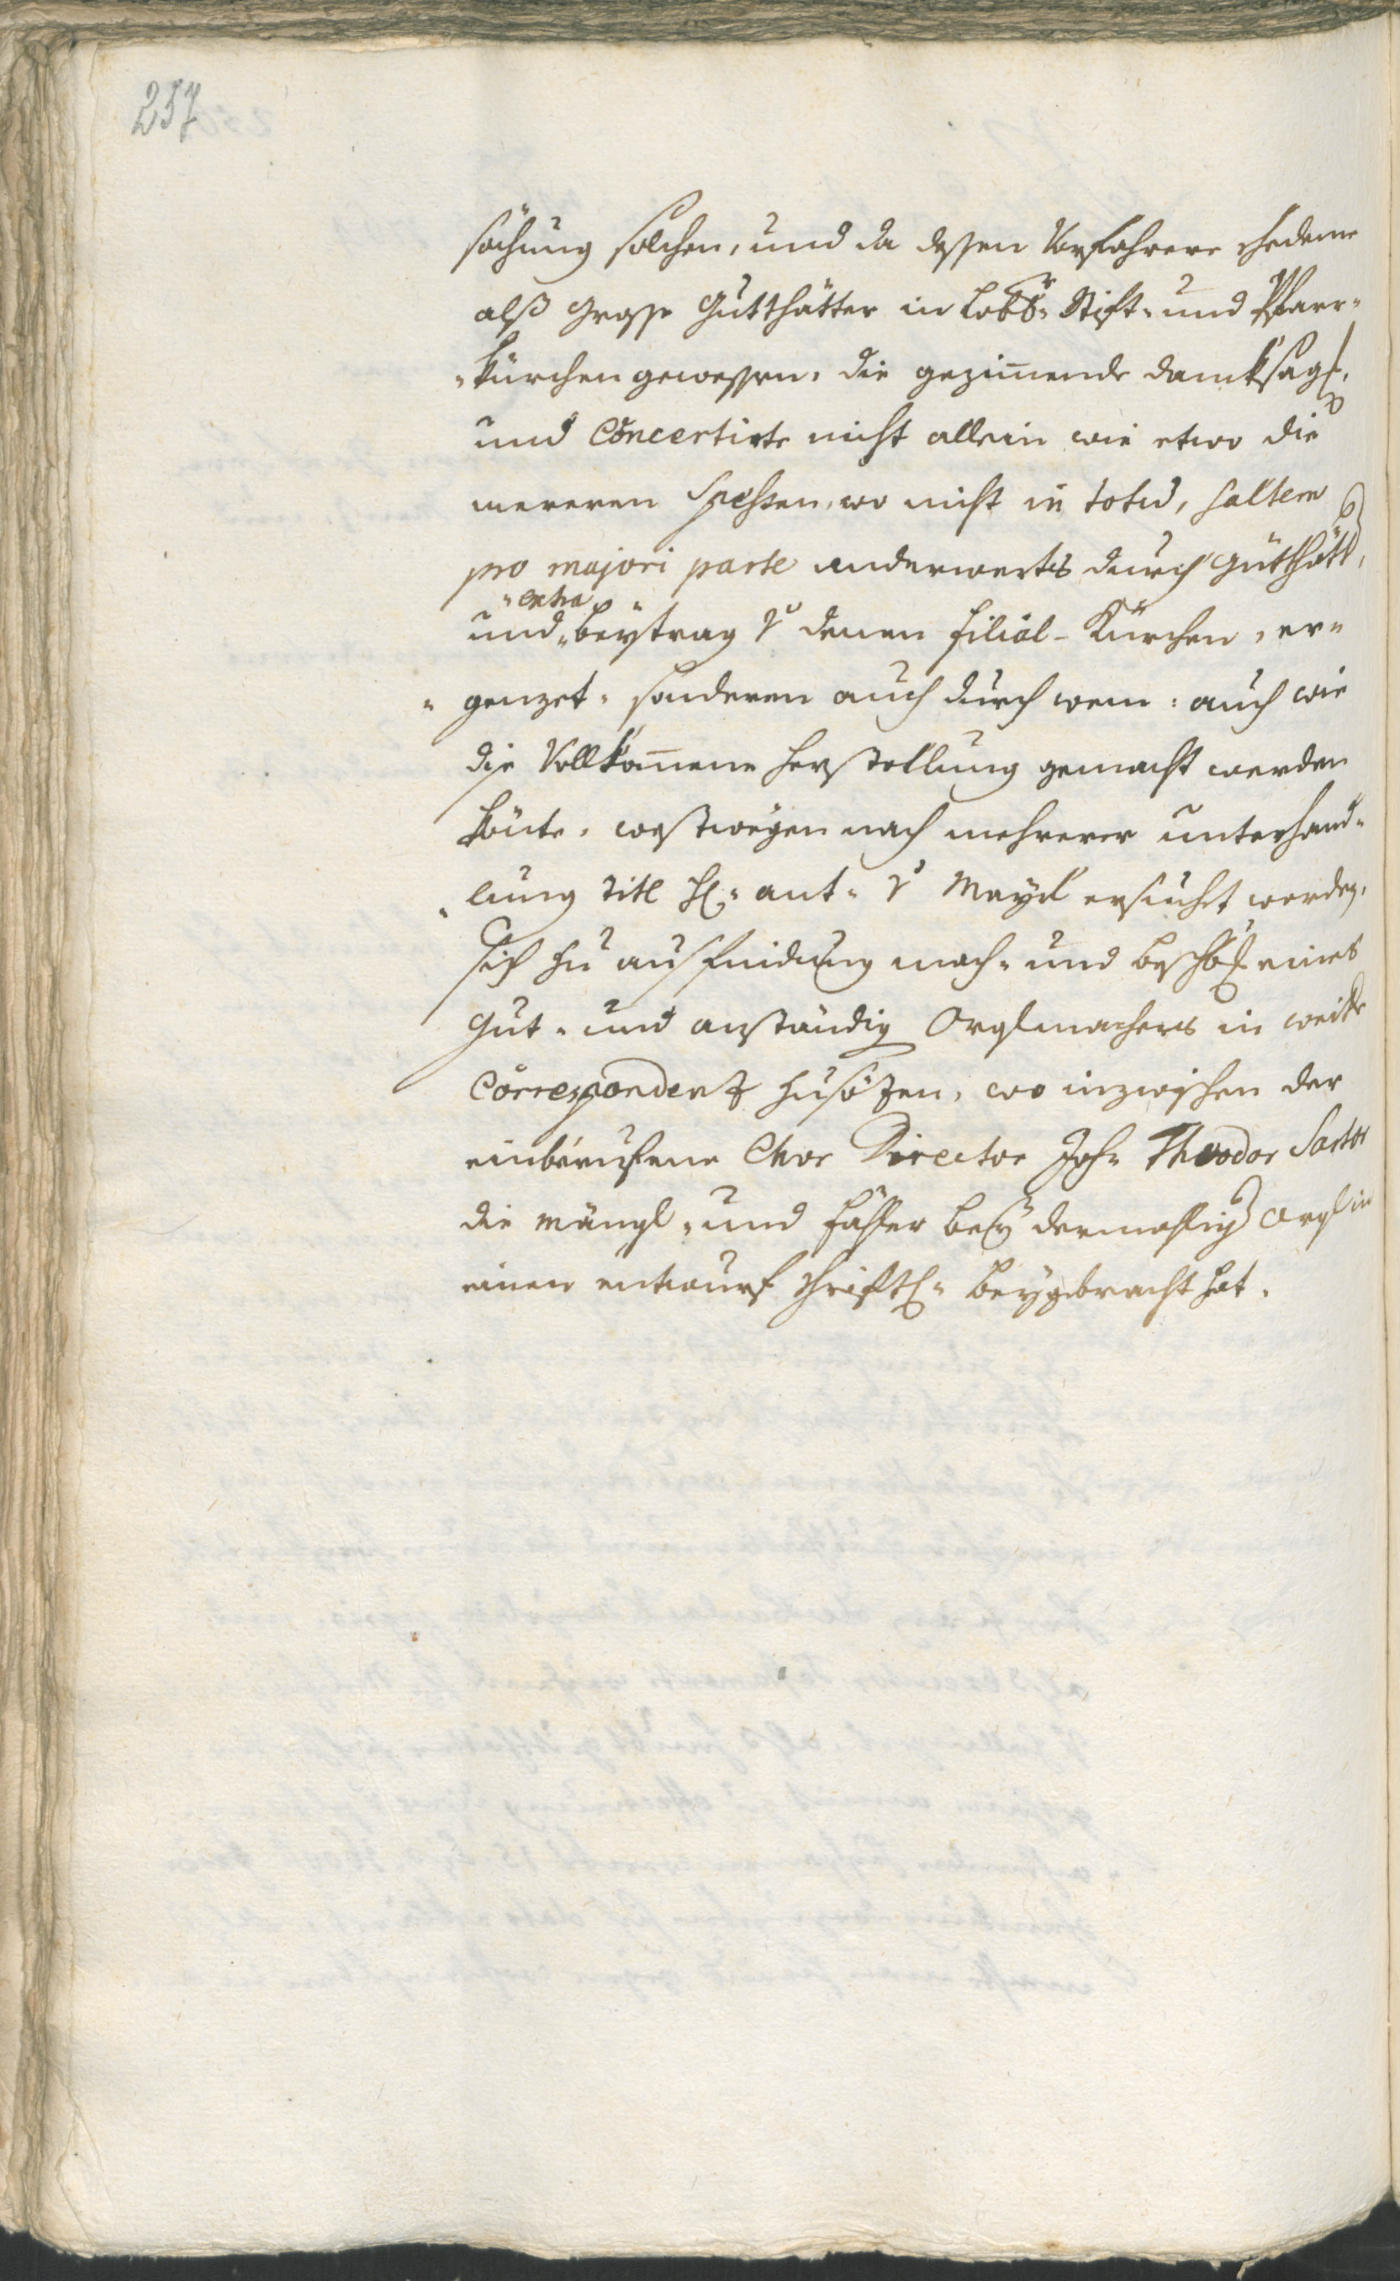 257
sachung solchen, und da dessen Vorfahrere ehedeme
alß Grosse Gutthätter in Lobb:r Stift- und Pfarr-
-Kürchen gewessen, die gezimende dancksag[,]
und Concertirte nicht allein wie etwo die
mereren Spessen, wo nicht in totu, saltem
pro majori parte anderwerts durch Gutthätt,
extra
und Beÿtrag denen Filial-Kürchen, er-
-genzet, sonderen auch durch wem, auch wie
die Vollkomene herstellung gemacht werden
könte, westwegen nach mehrerer unterhand-
-lung Titl H: ant: v Mayrl ersucht worden,
sich zu ausfindung mach- und eines
Gut- und anständig Orglmachers in weite
Correspondenz zusözen, wo inzwischen der
einberufene Chor Director Joh: Theodor Sartor
die mängl- und fähler beÿ dermahlig Orgl in
einen entwurf schriftl: beÿgebracht hat.